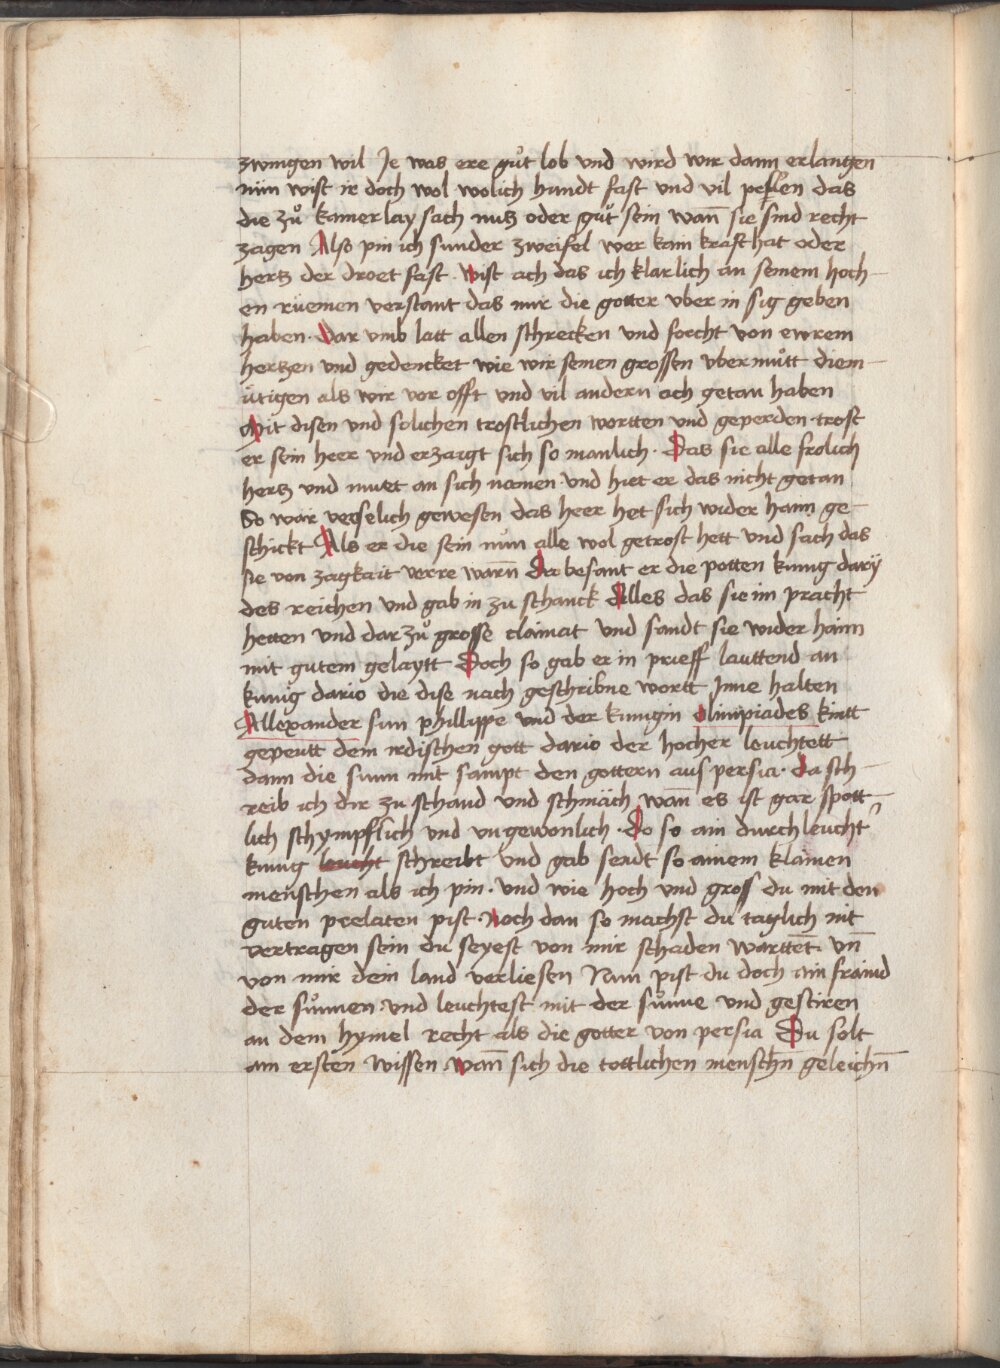 zwingen wil Je was ere guͦt lob vnd wird wir dann erlangen
nün wist ir doch wol wolich hundt fast vnd vil peffen das
die zuͦ kainerlay sach nutz oder guͦt sein wan̄ sie sind recht
zagen Alss pin ich sunder zweifel wer kain kraft hat oder
hertz der droet fast wist ach das ich klarlich an seinem hoch
en rüemen verstant das mir die gotter vber in sig geben
haben. Dar vmb latt allen schrecken vnd forcht von ewrem
hertzen vnd gedencket wie wir seinen grossen vbermuͦtt diem
ütigen als wir vor offt vnd vil andern ach getan haben
Mit disen vnd solichen trostlichen wortten vnd geperden trost
er sein heer vnd erzaigt sich so manlich. Das sie alle frolich
hertz vnd muet an sich namen vnd hiet er das nicht getan
So war verselich gewesen das heer het sich wider haim ge
schickt Als er die sein nun alle wol getrost hett vnd sach das
sie von zagkait verre warn̄ Da besant er die potten kunig darÿ
des reichen vnd gab in zu schanck Alles das sie im pracht
hetten vnd dar zuͦ grosse clainat vnd sandt sie wider haim
mit gutem gelaytt Doch so gab er in prieff lauttend an
kunig dario die dise nach geschribne wortt Inne halten
Allexander sun phillippe vnd der kunigin olimpiades kintt
gepeutt dem irdischen gott dario der hocher leuchtett
dann die sunn mit sampt den gottern aus persia. da sch
reib ich dir zu schand vnd schmäch wan̄ es ist gar spott
lich schympflich vnd vngewonlich. Do so ain durchleucht
kunig leucht schreibt vnd gab sendt so ainem klainen
menschen als ich pin. vnd wie hoch vnd gross du mit den
guten prelaten pist. Noch dan so machst du taglich nit
vertragen sein du seyest von mir schaden warttet. vn̄
von mir dein land verliesen Nam pist du doch ain fraind
der suͦnnen vnd leuchtest mit der suͦnne vnd gestiren
an dem hymel recht als die gotter von persia Du solt
am ersten wissen wan̄ sich die tottlichen menschn̄ geleichn̄